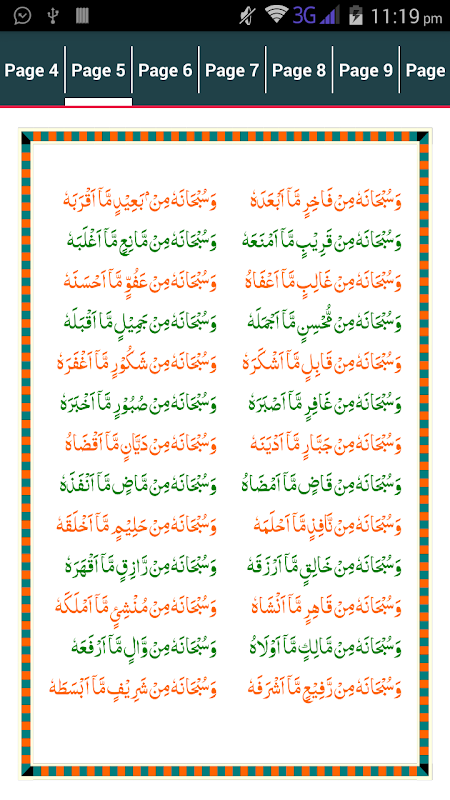 3G 11:19 pm
Page 4 Page 5 Page 6 Page 7 Page 8 Page 9 Page
وَسُبْحَانَهٗ مِنْ فَاخِرٍ مَّآ اَبْعَدَهٗ وَسُبْحَانَهٗ مِنْۢ بَعِيْدٍ مَّآ اَقْرَبَهٗ
وَسُبْحَانَهٗ مِنْ قَرِيْبٍ مَّآ اَمْنَعَهٗ وَسُبْحَانَهٗ مِنْ مَّانِعٍ مَّآ اَغْلَبَهٗ
وَسُبْحَانَهٗ مِنْ غَالِبٍ مَّآ اَعْفَاهُ وَسُبْحَانَهٗ مِنْ عَفُوٍّ مَّآ اَحْسَنَهٗ
وَسُبْحَانَهٗ مِنْ مُّحْسِنٍ مَّآ اَجْمَلَهٗ وَسُبْحَانَهٗ مِنْ جَمِيْلٍ مَّآ اَقْبَلَهٗ
وَسُبْحَانَهٗ مِنْ قَابِلٍ مَّآ اَشْكَرَهٗ وَسُبْحَانَهٗ مِنْ شَكُوْرٍ مَّآ اَغْفَرَهٗ
وَسُبْحَانَهٗ مِنْ غَافِرٍ مَّآ اَصْبَرَهٗ وَسُبْحَانَهٗ مِنْ صُبُوْرٍ مَّآ اَخْبَرَهٗ
وَسُبْحَانَهٗ مِنْ جَبَّارٍ مَّآ اَدْيَنَهٗ وَسُبْحَانَهٗ مِنْ دَيَّانٍ مَّآ اَقْضَاهُ
وَسُبْحَانَهٗ مِنْ قَاضٍ مَّآ اَمْضَاهُ وَسُبْحَانَهٗ مِنْ مَّاضٍ مَّآ اَنْفَذَهٗ
وَسُبْحَانَهٗ مِنْ نَّافِذٍ مَّآ اَحْلَمَهٗ وَسُبْحَانَهٗ مِنْ حَلِيْمٍ مَّآ اَخْلَقَهٗ
وَسُبْحَانَهٗ مِنْ خَالِقٍ مَّآ اَرْزَقَهٗ وَسُبْحَانَهٗ مِنْ رَّازِقٍ مَّآ اَقْهَرَهٗ
وَسُبْحَانَهٗ مِنْ قَاهِرٍ مَّآ اَنْشَاهُ وَسُبْحَانَهٗ مِنْ مُنْشِئٍ مَّآ اَمْلَكَهٗ
وَسُبْحَانَهٗ مِنْ مَّالِكٍ مَّآ اَوْلَاهُ وَسُبْحَانَهٗ مِنْ وَّالٍ مَّآ اَرْفَعَهٗ
وَسُبْحَانَهٗ مِنْ رَّفِيْعٍ مَّآ اَشْرَفَهٗ وَسُبْحَانَهٗ مِنْ شَرِيْفٍ مَّآ اَبْسَطَهٗ